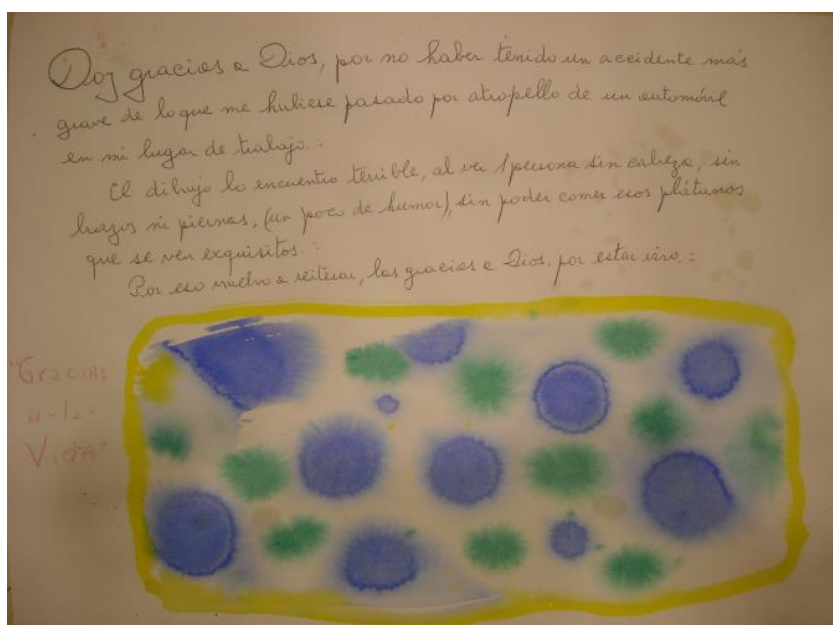 Doy gracias a Dios, por no haber tenido un accidente más
grave de lo que me hubiese pasado por atropello de un automóvil
en mi lugar de trabajo.:
El dibujo lo encuentro terrible, al ver 1 persona sin cabeza, sin
brazos ni piernas, (un poco de humor), sin poder comer esos plátanos
que se ven exquisitos.:
Por eso vuelvo a reiterar, las gracias a Dios, por estar vivo.=
"Gracias
a-la-
Vida"